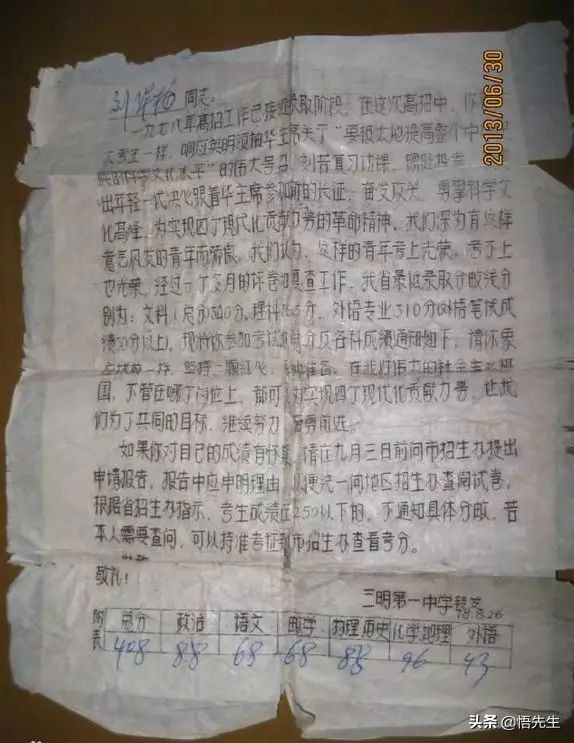 刘 同志:
一九七八年高招工作已接近录取阶段。在这次高招中，你
考生一样，响应英明领袖华主席关于“要极大地提高整个中
科学文化水平”的伟大号召，刻苦复习功课，踊跃报考，
出年轻一代决心跟着华主席参加新的长征，奋发攻关，勇攀科学文
化高峰，为实现四个现代化贡献力量的革命精神。我们深为有这样
意气风发的青年而骄傲。我们认为，这样的青年考上光荣，考不上
也光荣。经过一个多月的评卷和复查工作，我省最低录取分数线分
别为：文科（总分）340分，理科365分，外语专业310分（外语笔试成
绩50分以上）。现将你参加考试的总分及各科成绩通知如下，请你象
一样，坚持一颗红心，准备。在我们伟大的社会主义祖
国，不管在哪个岗位上，都可为实现四个现代化贡献力量，让我
们为了共同的目标，继续努力，奋勇前进。
如果你对自己的成绩有怀疑，请在九月三日前向市招生办提出
申请报告，报告中应申明理由，以便统一向地区招生办查阅试卷。
根据省招生办指示，考生成绩在250以下的，不通知具体分数，若
本人需要查问，可以持准考证到市招生办查看考分。
敬礼！
三明第一中学转发
78.8.26
附表 总分 政治 语文 数学 物理 历史 化学 地理 外语
408 88 68 68 88 96 43
2013/06/30
头条 @悟先生